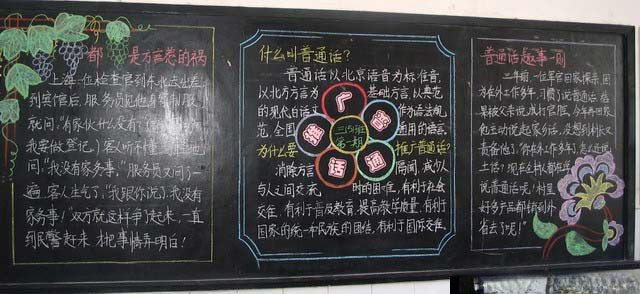 都是方言惹的祸
上海一位检查官到东北去出差
到宾馆后,服务员见他身穿制服
就问:"有家伙什么没有?
我要做登记"客人听不懂
问:"我没有家务事。"服务员又问了一
遍,客人生气了:"我跟你说了,我没有
家务事!"双方就这样争了起来,一直
到民警赶来,才把事情弄明白!
什么叫普通话?
普通话以北京语音为标准音,
以北方方言为基础方言,以典范
的现代白话文作为语法规
范,全国通用的语言。
为什么要推广普通话?
消除方言隔阂,减少
人与人之间交流时的困难,有利于社会
交往,有利于普及教育,提高教学质量,有利于
国家的统一和民族的团结,有利于国际交往。
推广普通话
三(5)班
第一期
普通话趣事一则
三年前,一位军官回家探亲,因
为在外工作多年,习惯了说普通话,结
果被父亲说成打官腔,今年再回家
他主动说起家乡话,没想到村人又
责备他了:你在外工作多年,怎么还说
土话?现在村人都在学
说普通话呢!村里
好多产品都销到外
省去了呢!"